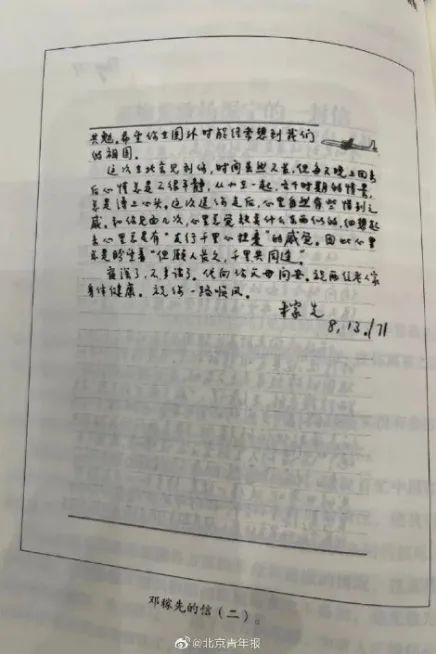 共勉。希望你在国外时能经常想到我们
的祖国。
这次在北京见到你,时间虽然不长,但每天晚上回来
后心情总是不很平静,从小在一起,各个时期的情景,
总是涌上心头。这次送你走后,心里自然有些惜别之
感。和你见面几次,心里总觉缺点什么东西似的,细想起
来心里总是有“友行千里心担忧”的感觉。因此心里
总是盼望着“但愿人长久,千里共同途”。
夜深了,不多谈了。代向你父母问安。祝两位老人家
身体健康。祝你一路顺风。
稼先
8,13,/71
邓稼先的信(二)。
@北京青年报